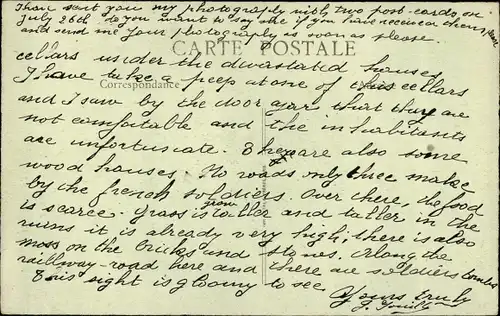 I have sent you my photography with two post-cards on
July 26th do you want to say me if you have received them,
and send me your photography is soon as please
CARTE POSTALE
cellars under the devastated houses
Correspondance
I have take a peep at one of this cellars
and I saw by the door ajar that they are
not comfortable and the inhabitants
are unfortunate. There are also some
wood houses. No roads only three make
by the french soldiers. Over there, the food
is scarce. Grass is grow taller and taller in the
ruins it is already very high, there is also
moss on the bricks and stones. Along the
railway-road here and there are soldiers tombs
This sight is gloomy to see
Yours truly